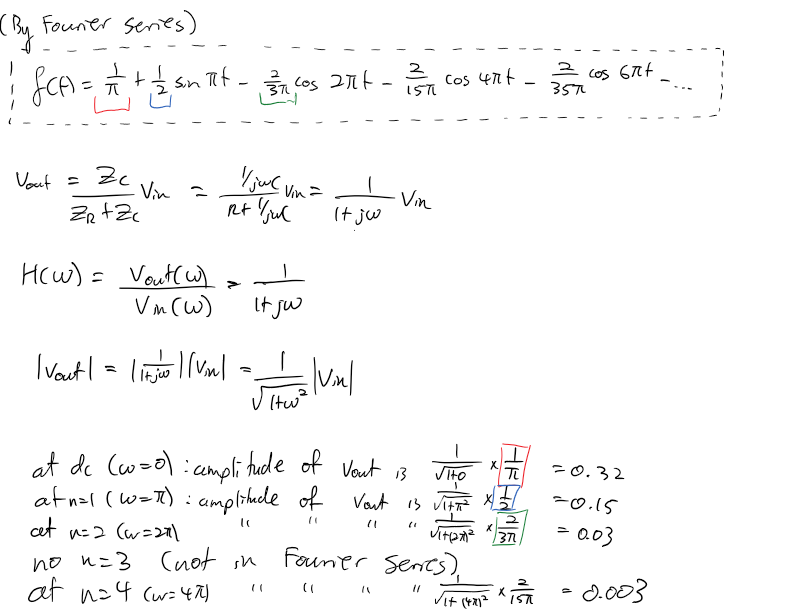 (By Fourier series)
f(t) = 1/π + 1/2 sin πt − 2/3π cos 2πt − 2/15π cos 4πt − 2/35π cos 6πt − ...
Vout = Zc/(ZR + Zc) Vin = (1/jωC)/(R + 1/jωC) Vin = 1/(1+jω) Vin
H(ω) = Vout(ω)/Vin(ω) = 1/(1+jω)
|Vout| = |1/(1+jω)| |Vin| = 1/√(1+ω²) |Vin|
at dc (ω=0) : amplitude of Vout is 1/√(1+0) × 1/π = 0.32
at n=1 (ω=π) : amplitude of Vout is 1/√(1+π²) × 1/2 = 0.15
at n=2 (ω=2π) " " " " 1/√(1+(2π)²) × 2/3π = 0.03
no n=3 (not in Fourier Series)
at n=4 (ω=4π) " " " " 1/√(1+(4π)²) × 2/15π = 0.003